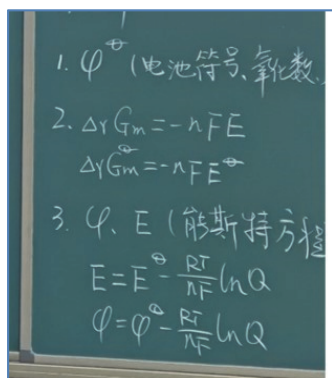 1. φ^⊖ (电池符号、氧化数、
2. ΔrGm = -nFE
ΔrGm^⊖ = -nFE^⊖
3. φ、E (能斯特方程
E = E^⊖ - RT/nF lnQ
φ = φ^⊖ - RT/nF lnQ